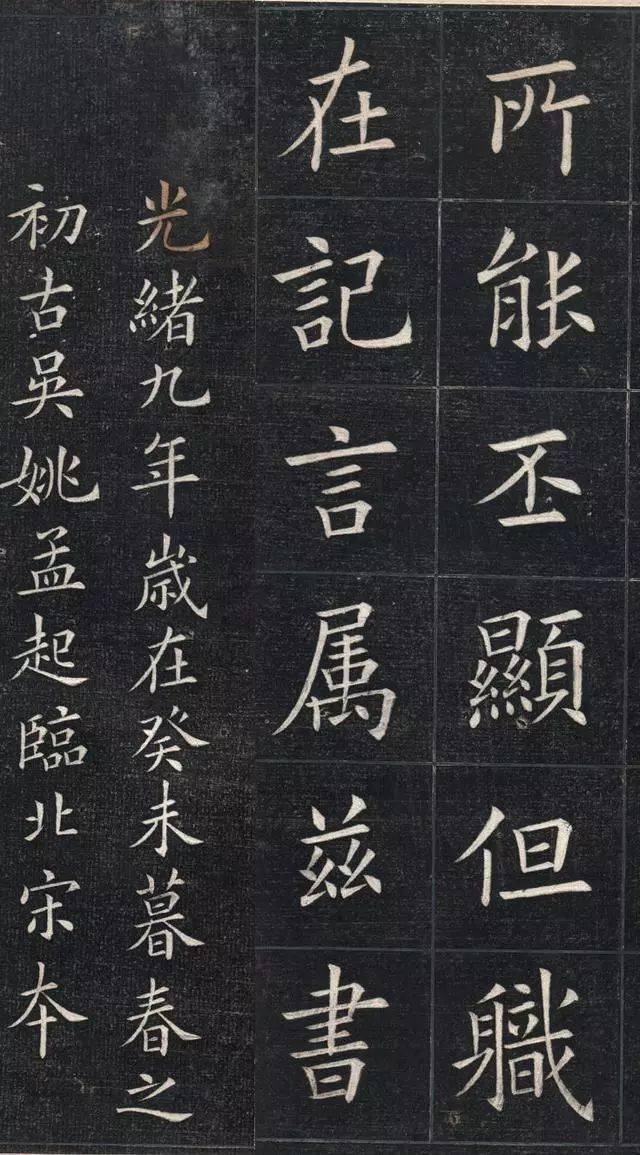 所能丕顯但軄
在記言属茲書
光緒九年歲在癸未暮春之
初古吳姚孟起臨北宋本